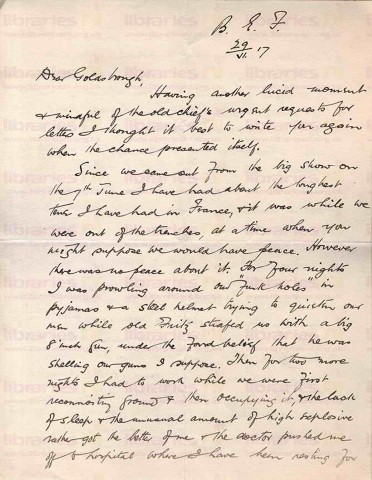 B. E. F.
29
VI. 17
Dear Goldsbrough,
Having another lucid moment
& mindful of the old chief's urgent requests for
letters I thought it best to write you again
when the chance presented itself.
Since we came out from the big show on
the 7th June I have had about the toughest
time I have had in France, & it was while we
were out of the trenches, at a time when you
might suppose we would have peace. However
there was no peace about it. For four nights
I was prowling around our "funk holes" in
pyjamas & a steel helmet trying to quieten our
men while old Fritz strafed us with a big
8 inch gun, under the fond belief that he was
shelling our guns I suppose. Then for two more
nights I had to work while we were first
reconnoitring ground & then occupying it, & the lack
of sleep & the unusual amount of high explosive
rather got the better of me & the doctor pushed me
off to hospital where I have been resting for